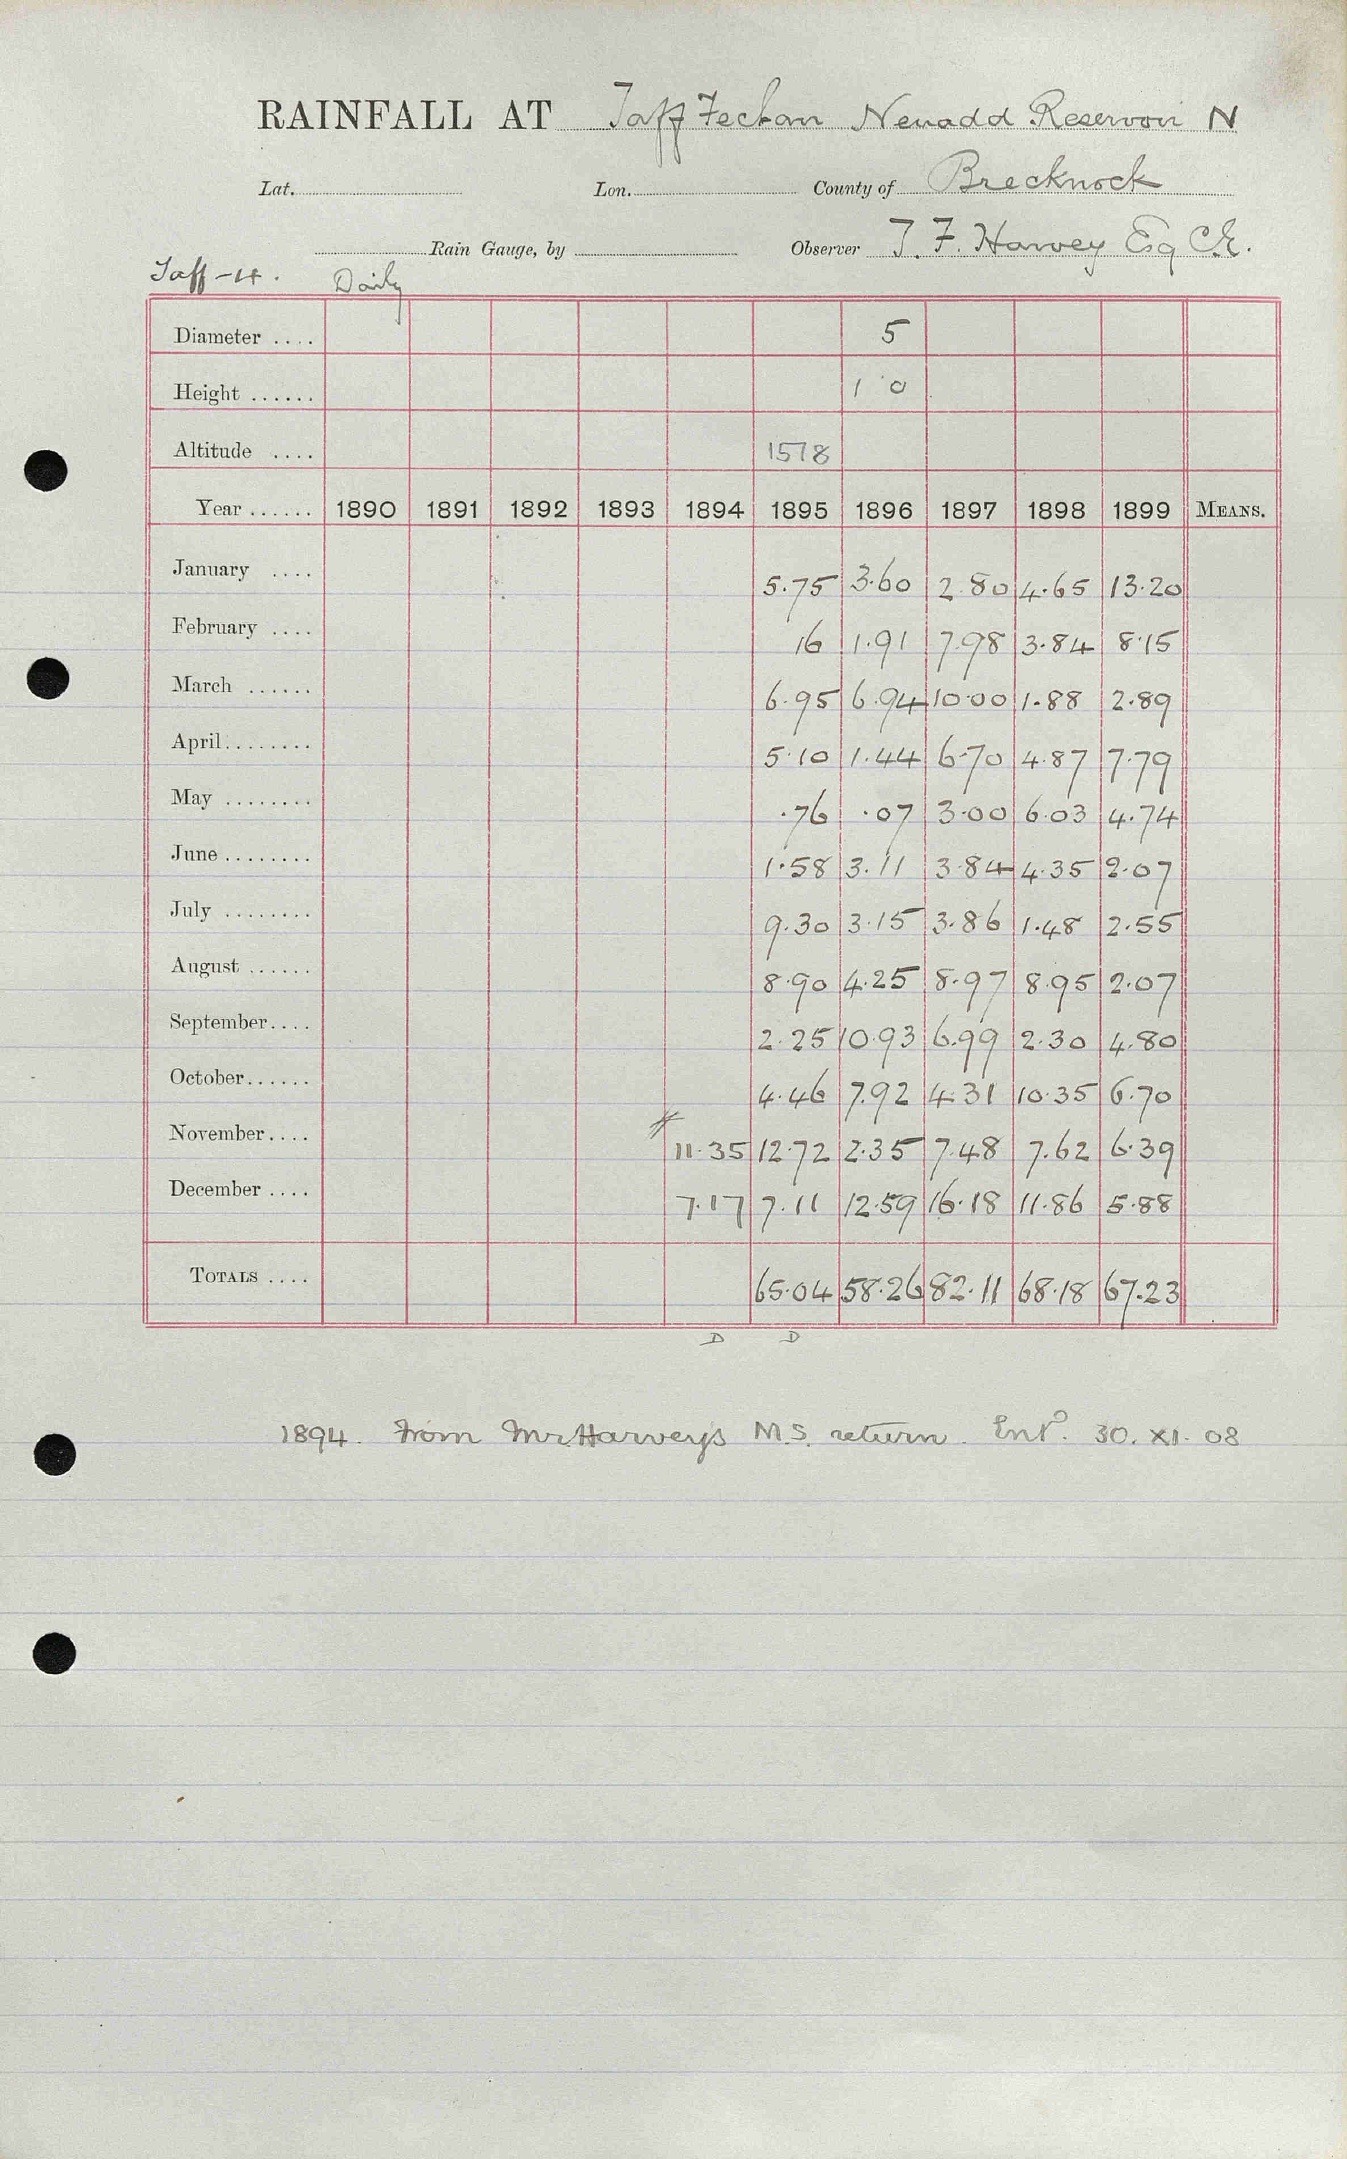 RAINFALL AT Taff Fechan Neuadd Reservoir N
Lat. Lon. County of Brecknock
Rain Gauge, by Observer T. F. Harvey Esq C.E.
Taff-14. Daily
Diameter .... 5
Height ...... 1 0
Altitude .... 1578
Year ...... 1890 1891 1892 1893 1894 1895 1896 1897 1898 1899 MEANS.
January .... 5.75 3.60 2.80 4.65 13.20
February .... 16 1.91 7.98 3.84 8.15
March ...... 6.95 6.94 10.00 1.88 2.89
April........ 5.10 1.44 6.70 4.87 7.79
May ........ .76 .07 3.00 6.03 4.74
June ........ 1.58 3.11 3.84 4.35 2.07
July ........ 9.30 3.15 3.86 1.48 2.55
August ...... 8.90 4.25 8.97 8.95 2.07
September.... 2.25 10.93 6.99 2.30 4.80
October...... 4.46 7.92 4.31 10.35 6.70
November.... 11.35 12.72 2.35 7.48 7.62 6.39
December .... 7.17 7.11 12.59 16.18 11.86 5.88
TOTALS .... 65.04 58.26 82.11 68.18 67.23
D D
1894. From Mr. Harvey's M.S. return. Entd. 30. XI. 08